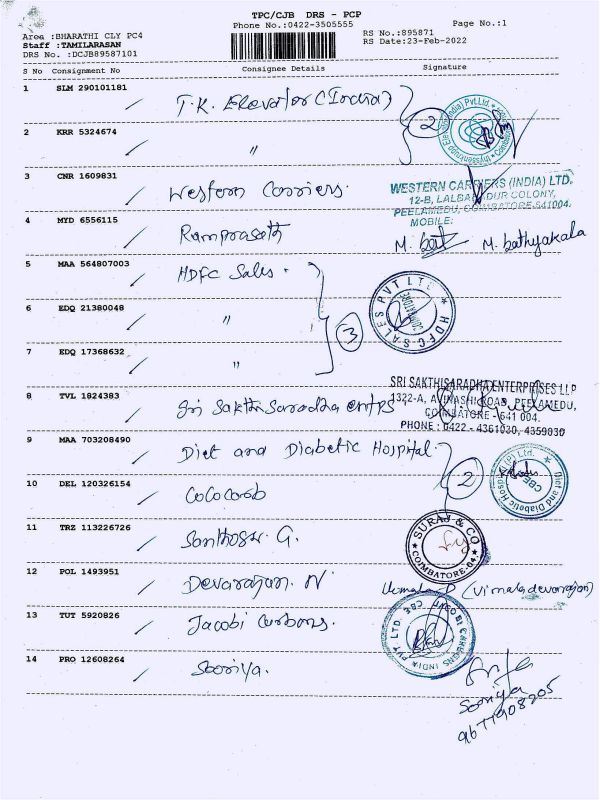 TPC/CJB DRS - PCP
Phone No.:0422-3505555
Page No.:1
Area :BHARATHI CLY PC4
Staff :TAMILARASAN
DRS No. :DCJB89587101
RS No.:895871
RS Date:23-Feb-2022
S No Consignment No Consignee Details Signature
1 SLM 290101181 T.K. Elevator (India) 2
2 KRR 5324674 "
3 CNR 1609831 Western Carriers.
WESTERN CARRIERS (INDIA) LTD.
12-B, LALBAHADUR COLONY,
PEELAMEDU, COIMBATORE-641004.
MOBILE:
4 MYD 6556115 Ramprasath M. bathyakala
5 MAA 564807003 HDFC Sales.
HDFC SALES PVT LTD
COIMBATORE
6 EDQ 21380048 " 3
7 EDQ 17368632 "
8 TVL 1824383 Sri Sakthi Saradha entps
SRI SAKTHISARADHA ENTERPRISES LLP
1322-A, AVINASHI ROAD, PEELAMEDU,
COIMBATORE - 641 004.
PHONE : 0422 - 4361030, 4359030
9 MAA 703208490 Diet and Diabetic Hospital. 2
Diet and Diabetic Hospital (P) Ltd.
CBE
10 DEL 120326154 Cococarb
11 TRZ 113226726 Santhosh. G.
SURAJ & CO
COIMBATORE-04
12 POL 1493951 Devarajan. N (Vimaladevarajan)
13 TUT 5920826 Jacobi Carbons.
JACOBI CARBONS INDIA PVT. LTD. CBE
14 PRO 12608264 Sooriya.
Sooriya
9677908205